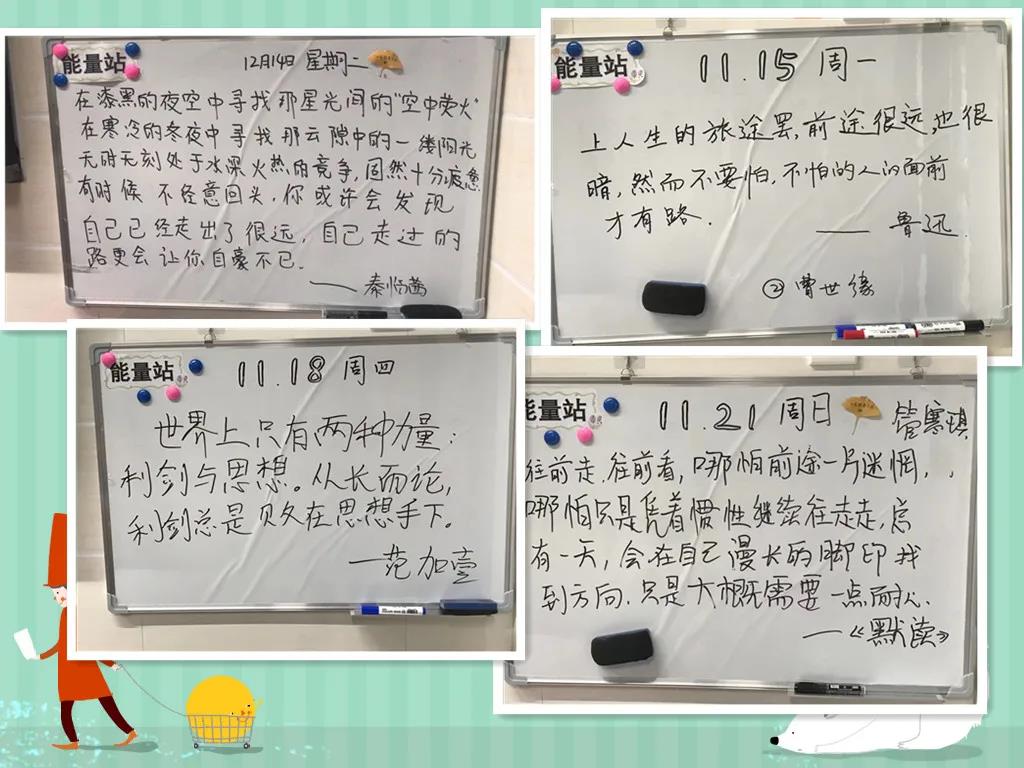 能量站
12月14日 星期二
在漆黑的夜空中寻找那星光间的“空中萤火”
在寒冷的冬夜中寻找那云隙中的一缕阳光
无时无刻处于水深火热的竞争,固然十分疲惫
有时候 不经意回头,你或许会发现
自己已经走出了很远,自己走过的
路更会让你自豪不已.
——秦怡茜
能量站
11.15 周一
上人生的旅途罢,前途很远,也很
暗,然而不要怕,不怕的人的面前
才有路.
—— 鲁迅
② 曹世缘
能量站
11.18 周四
世界上只有两种力量:
利剑与思想。从长而论,
利剑总是败在思想手下。
—范加壹
能量站
11.21 周日
管寒琪
往前走,往前看,哪怕前途一片迷惘,
哪怕只是凭着惯性继续往走走,总
有一天,会在自己漫长的脚印找
到方向.只是大概需要一点耐心.
——《默读》